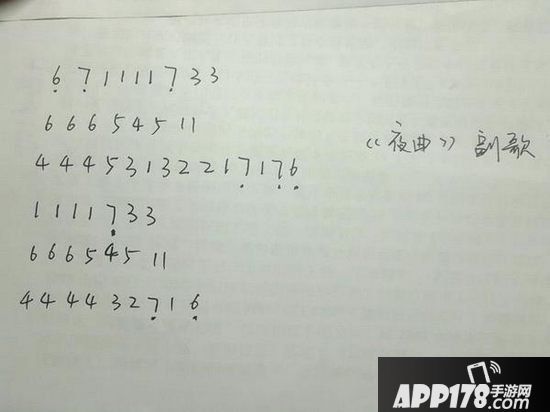 6 7 1 1 1 1 7 3 3
6 6 6 5 4 5 1 1
4 4 4 5 3 1 3 2 2 1 7 1 7 6
《夜曲》 副歌
1 1 1 1 7 3 3
6 6 6 5 4 5 1 1
4 4 4 4 3 2 7 1 6
APP178手游网
.com